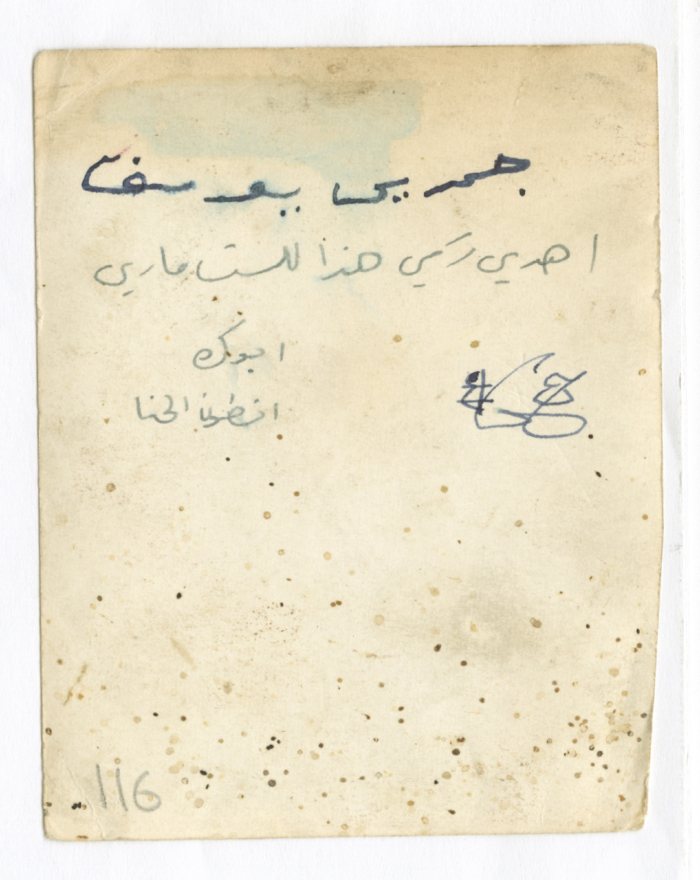 جرجس يوسف
اهدي رسمي هذا للست ماري
ابوك
انطون الحنا
116